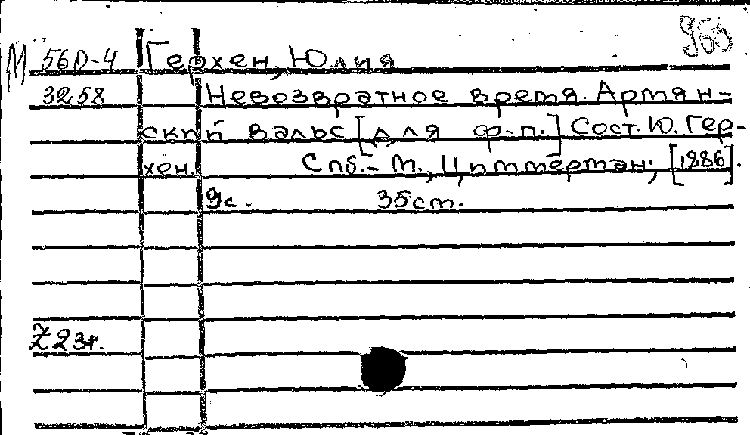 М 56D-4 Герхен, Юлия
3258 Невозвратное время. Армян-
ский вальс [для ф.-п.] Сост. Ю. Гер-
хен. Спб.-М., Циммерман, [1886].
9с. 35см.